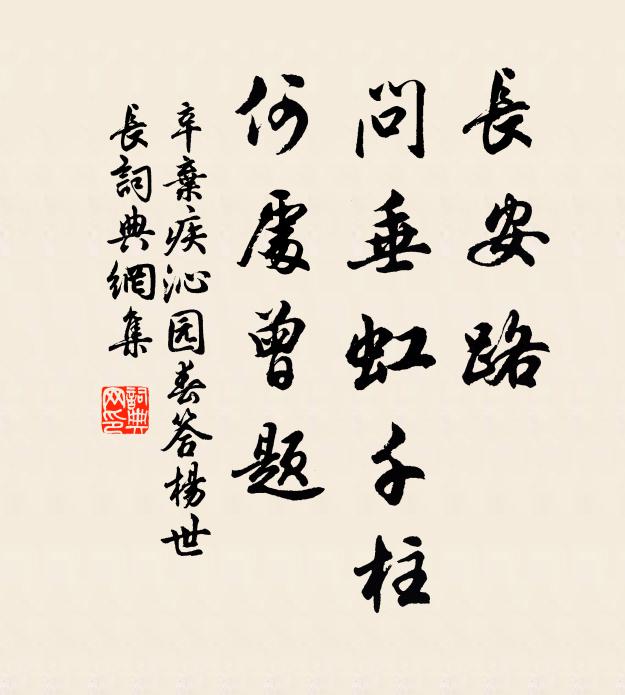 長安路
問垂虹千柱
何處曾題
辛棄疾沁园春答楊世
長詞典網集
詞典网印